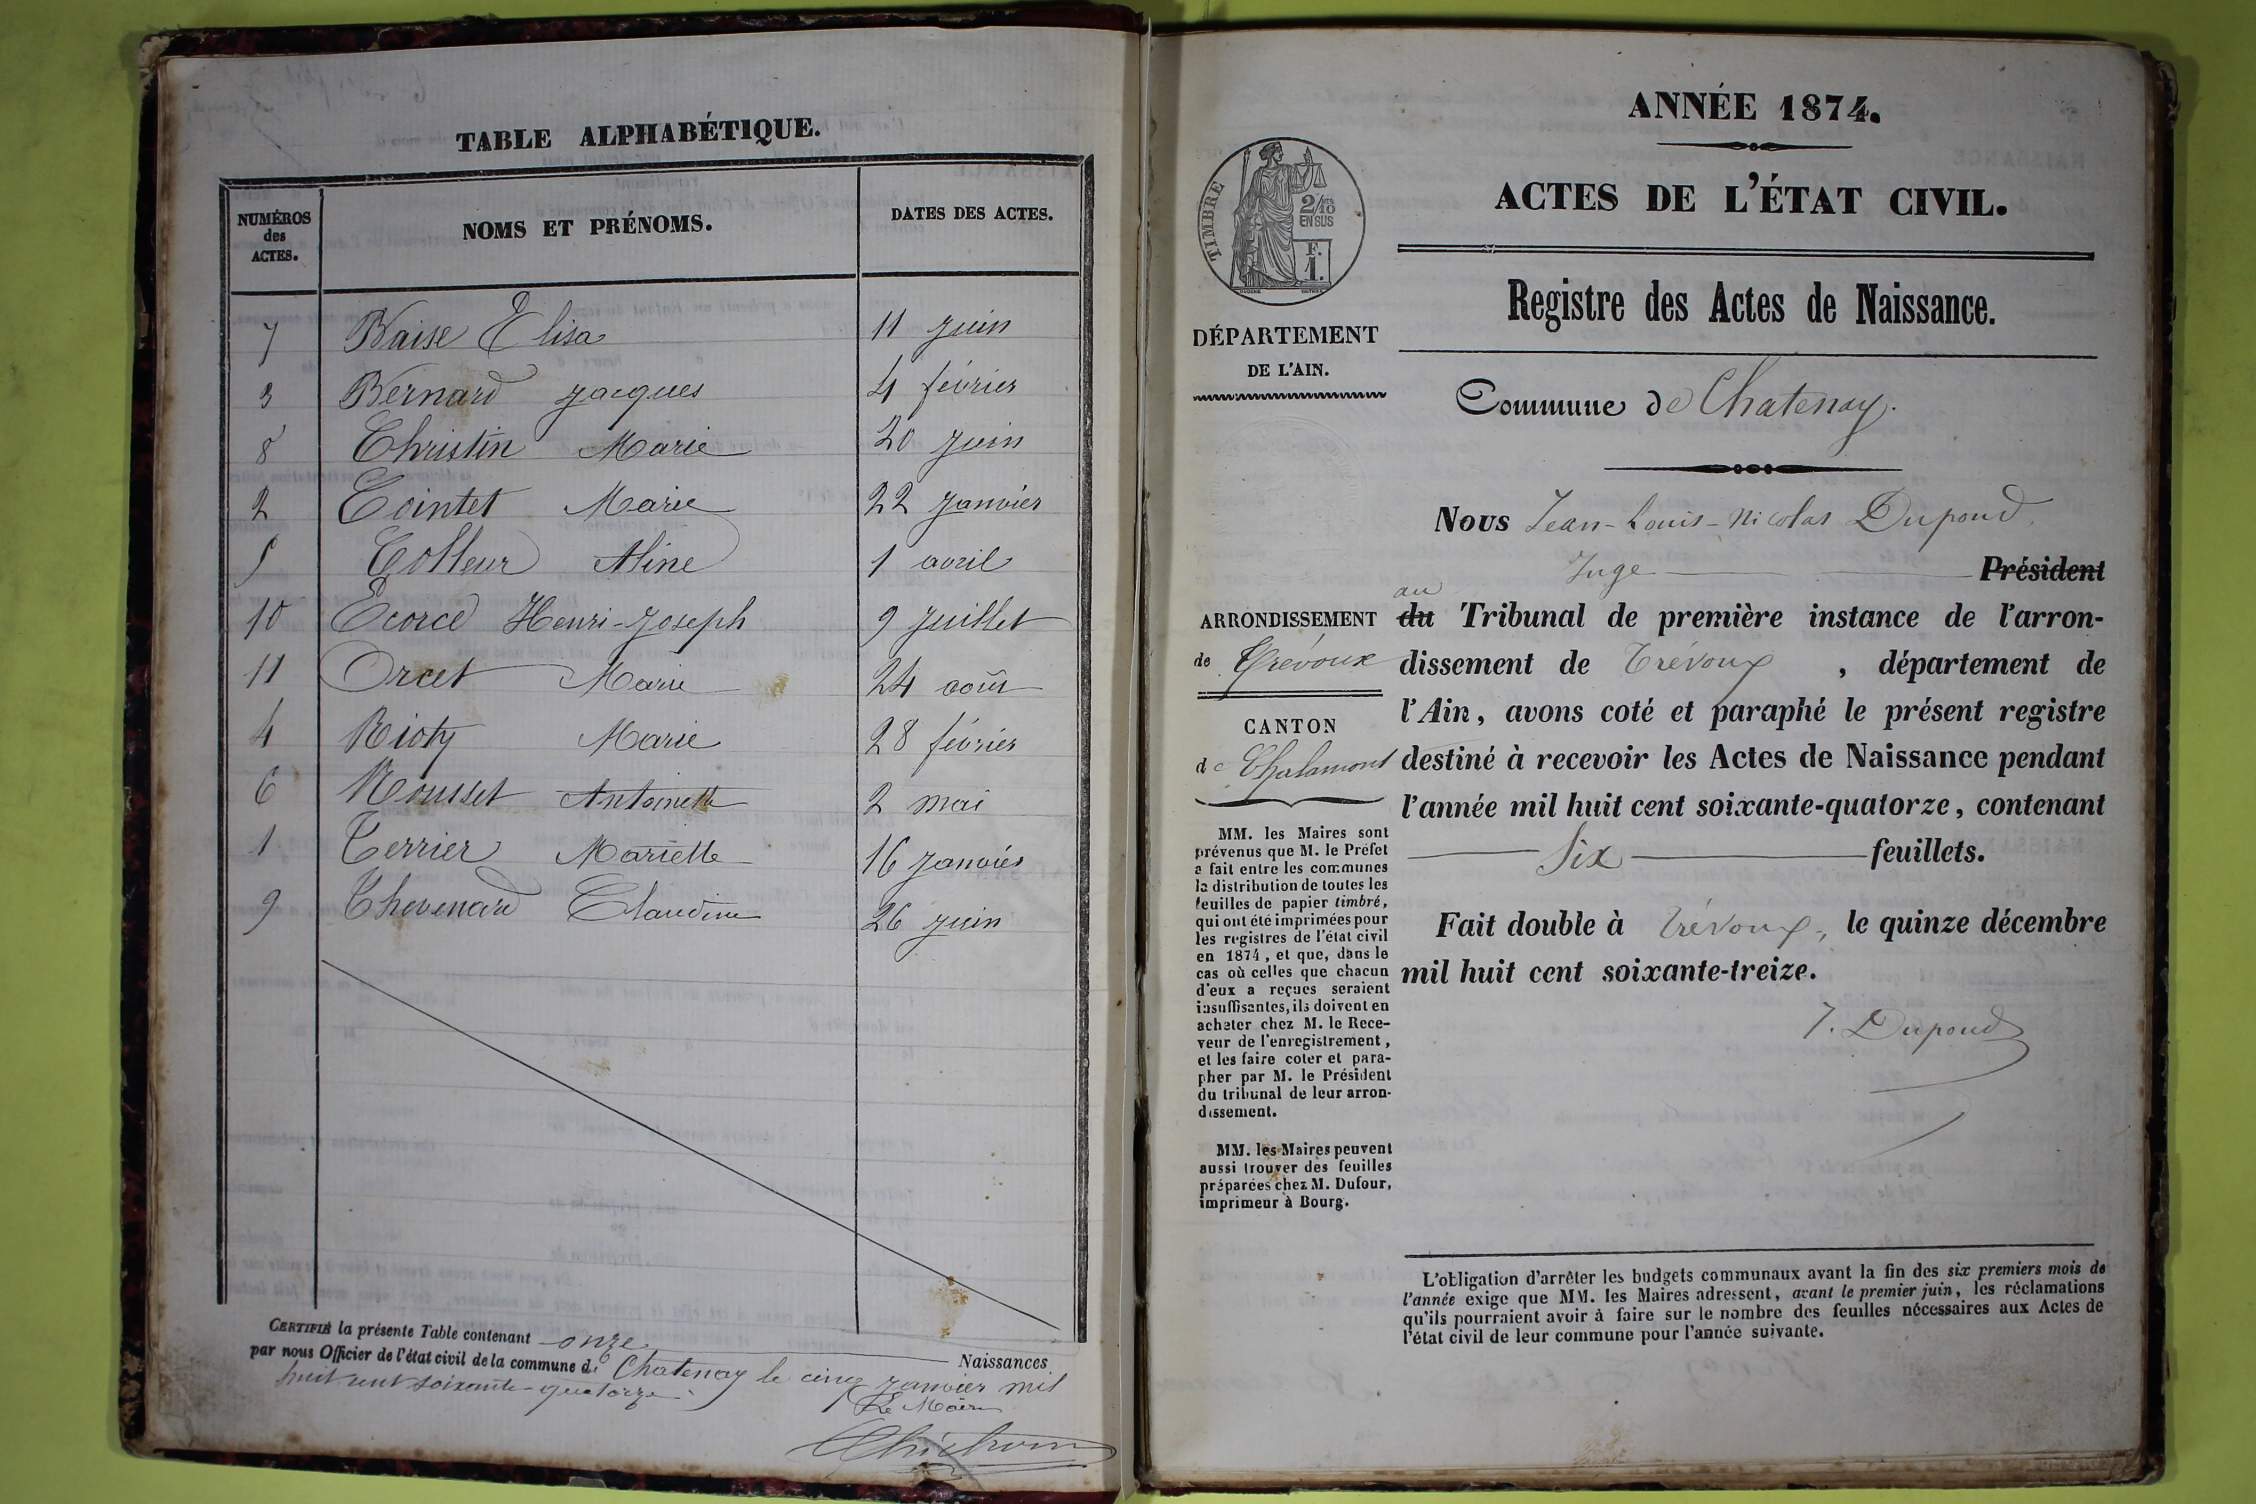 TABLE ALPHABÉTIQUE.
NUMÉROS des ACTES. NOMS ET PRÉNOMS. DATES DES ACTES.
7 Baise Elisa 11 juin
3 Bernard Jacques 4 février
8 Christin Marie 20 juin
2 Cointet Marie 22 janvier
5 Colleur Aline 1 avril
10 Ecorce Henri-Joseph 9 juillet
11 Orcet Marie 24 août
4 Rioty Marie 28 février
6 Rousset Antoinette 2 mai
1 Terrier Mariette 16 janvier
9 Thevenard Claudine 26 juin
CERTIFIÉ la présente Table contenant onze Naissances
par nous Officier de l'état civil de la commune de Chatenay le cinq janvier mil
huit cent soixante-quatorze
Le Maire
ANNÉE 1874.
ACTES DE L'ÉTAT CIVIL.
TIMBRE
2/10
EN SUS
F.
1.
Registre des Actes de Naissance.
DÉPARTEMENT
DE L'AIN.
Commune de Chatenay.
Nous Jean-Louis-Nicolas Dupond,
Juge Président
au
du Tribunal de première instance de l'arron-
dissement de Trévoux, département de
l'Ain, avons coté et paraphé le présent registre
destiné à recevoir les Actes de Naissance pendant
l'année mil huit cent soixante-quatorze, contenant
Six feuillets.
Fait double à Trévoux, le quinze décembre
mil huit cent soixante-treize.
J. Dupond
ARRONDISSEMENT
de Trévoux
CANTON
de Chalamont
MM. les Maires sont
prévenus que M. le Préfet
a fait entre les communes
la distribution de toutes les
feuilles de papier timbré,
qui ont été imprimées pour
les registres de l'état civil
en 1874, et que, dans le
cas où celles que chacun
d'eux a reçues seraient
insuffisantes, ils doivent en
acheter chez M. le Rece-
veur de l'enregistrement,
et les faire coter et para-
pher par M. le Président
du tribunal de leur arron-
dissement.
MM. les Maires peuvent
aussi trouver des feuilles
préparées chez M. Dufour,
imprimeur à Bourg.
L'obligation d'arrêter les budgets communaux avant la fin des six premiers mois de
l'année exige que MM. les Maires adressent, avant le premier juin, les réclamations
qu'ils pourraient avoir à faire sur le nombre des feuilles nécessaires aux Actes de
l'état civil de leur commune pour l'année suivante.